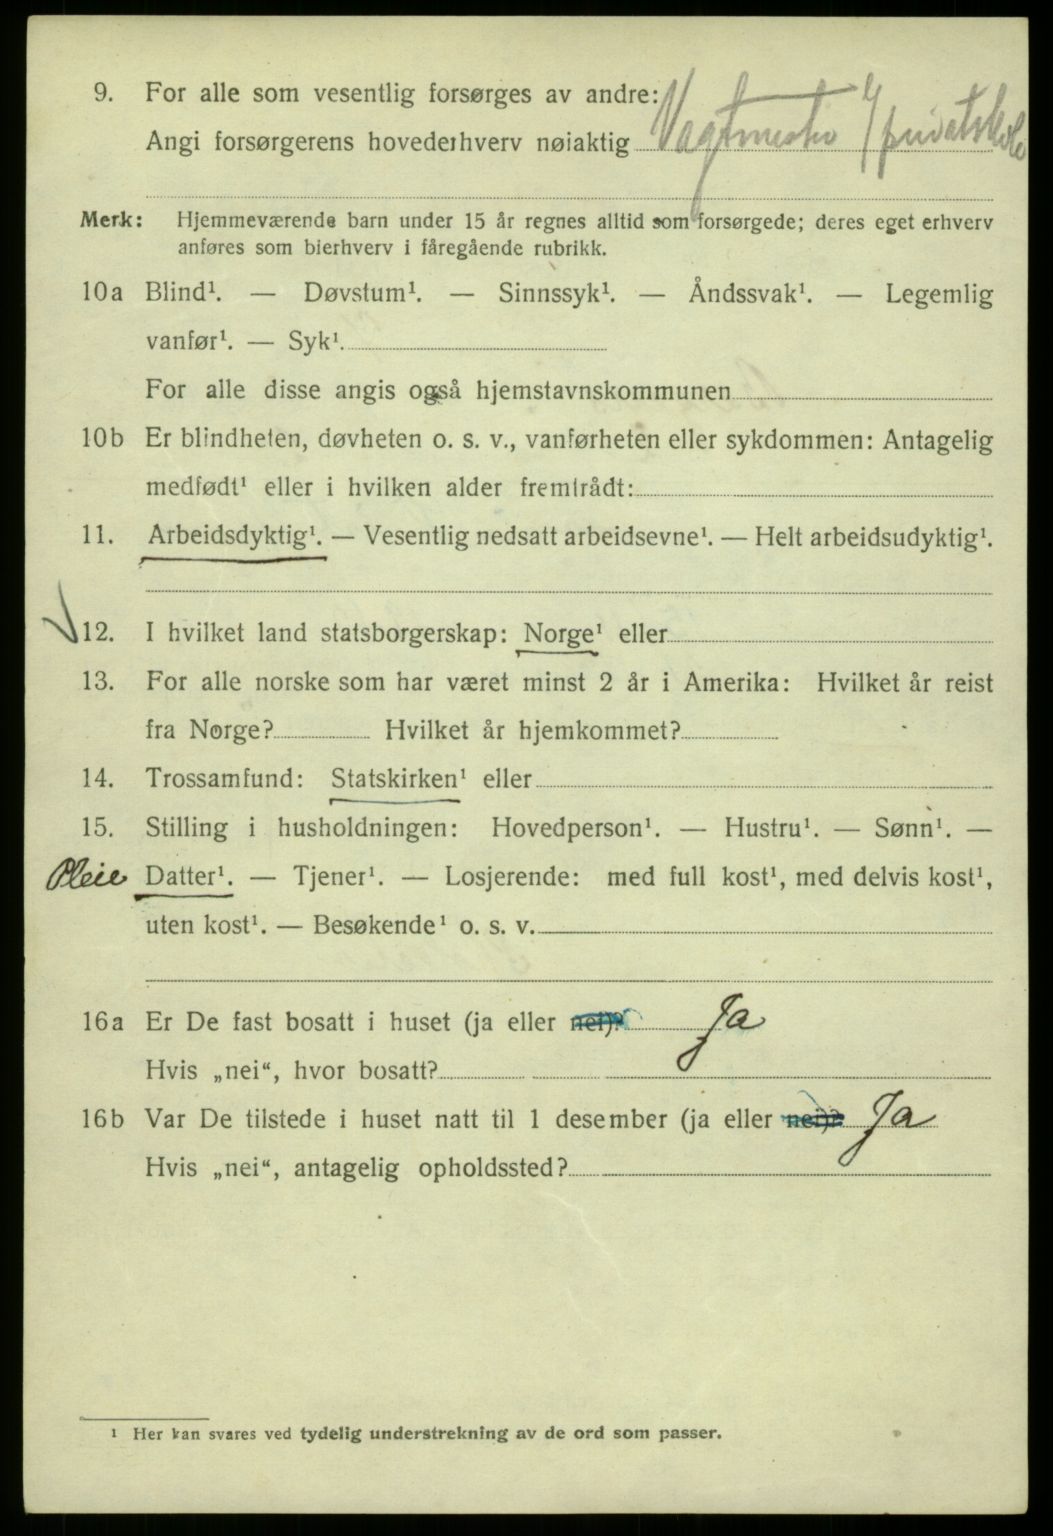 9. For alle som vesentlig forsørges av andre:
Angi forsørgerens hovederhverv nøiaktig Vagtmester / privatskole
Merk: Hjemmeværende barn under 15 år regnes alltid som forsørgede; deres eget erhverv
anføres som bierhverv i fåregående rubrikk.
10a Blind¹. — Døvstum¹. — Sinnssyk¹. — Åndssvak¹. — Legemlig
vanfør¹. — Syk¹.
For alle disse angis også hjemstavnskommunen
10b Er blindheten, døvheten o. s. v., vanførheten eller sykdommen: Antagelig
medfødt¹ eller i hvilken alder fremtrådt:
11. Arbeidsdyktig¹. — Vesentlig nedsatt arbeidsevne¹. — Helt arbeidsudyktig¹.
12. I hvilket land statsborgerskap: Norge¹ eller
13. For alle norske som har været minst 2 år i Amerika: Hvilket år reist
fra Norge? Hvilket år hjemkommet?
14. Trossamfund: Statskirken¹ eller
15. Stilling i husholdningen: Hovedperson¹. — Hustru¹. — Sønn¹. —
Pleie Datter¹. — Tjener¹. — Losjerende: med full kost¹, med delvis kost¹,
uten kost¹. — Besøkende¹ o. s. v.
16a Er De fast bosatt i huset (ja eller nei)? Ja
Hvis „nei“, hvor bosatt?
16b Var De tilstede i huset natt til 1 desember (ja eller nei)? Ja
Hvis „nei“, antagelig opholdssted?
¹ Her kan svares ved tydelig understrekning av de ord som passer.